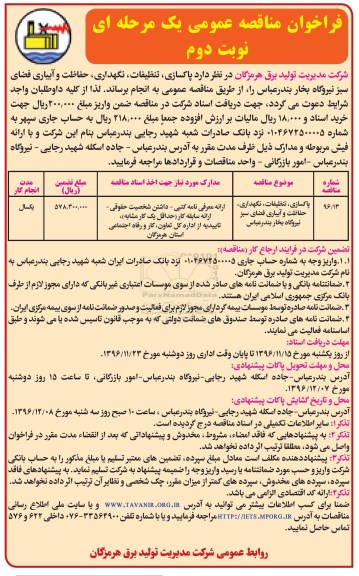 فراخوان مناقصه عمومی یک مرحله ای
نوبت دوم
شرکت مدیریت تولید برق هرمزگان در نظر دارد پاکسازی، تنظیفات، نگهداری، حفاظت و آبیاری فضای
سبز نیروگاه بخار بندرعباس را، از طریق مناقصه عمومی به انجام برساند. لذا از کلیه داوطلبان واجد
شرایط دعوت می گردد، جهت دریافت اسناد شرکت در مناقصه ضمن واریز مبلغ ۲۰۰,۰۰۰ریال جهت
خرید اسناد و ۱۸,۰۰۰ ریال مالیات بر ارزش افزوده جمعاً مبلغ ۲۱۸,۰۰۰ ریال به حساب جاری سپهر به
شماره ۰۱۰۴۶۷۲۵۰۰۰۰۵ نزد بانک صادرات شعبه شهید رجایی بندرعباس بنام این شرکت و با ارائه
فیش مربوطه و مدارک ذیل ظرف مدت مقرر به آدرس بندرعباس - جاده اسکله شهید رجایی - نیروگاه
بندرعباس -امور بازرگانی - واحد مناقصات و قراردادها مراجعه فرمایید.
شماره مناقصه
موضوع مناقصه
مدارک مورد نیاز جهت اخذ اسناد مناقصه
مبلغ تضمین (ریال)
مدت انجام کار
۹۶/۱۳
پاکسازی، تنظیفات، نگهداری،
حفاظت و آبیاری فضای سبز
نیروگاه بخار بندرعباس
ارائه معرفی نامه کتبی - داشتن شخصیت حقوقی-
ارائه سابقه کار (حداقل یک کار مشابه)،
تاییدیه از اداره کل تعاون، کار و رفاه اجتماعی
استان هرمزگان
۵۷۸,۳۰۰,۰۰۰
یکسال
تضمین شرکت در فرایند ارجاع کار (مناقصه):
۱.۱.واریز وجه به شماره حساب جاری ۰۱۰۴۶۷۲۵۰۰۰۰۵ نزد بانک صادرات ایران شعبه شهید رجایی بندرعباس به
نام شرکت مدیریت تولید برق هرمزگان.
۲.ضمانتنامه بانکی و یا ضمانت نامه های صادر شده از سوی موسسات اعتباری غیر بانکی که دارای مجوز لازم از طرف
بانک مرکزی جمهوری اسلامی ایران هستند.
۳.ضمانت نامه صادره توسط موسسات بیمه گر دارای مجوز لازم برای فعالیت و صدور ضمانت نامه از سوی بیمه مرکزی ایران.
۴.ضمانت نامه های صادره توسط صندوق های ضمانت دولتی که به موجب قانون تاسیس شده یا می شوند و طبق
اساسنامه فعالیت می نمایند.
مهلت دریافت اسناد:
از روز یکشنبه مورخ ۱۳۹۶/۱۱/۱۵ تا پایان وقت اداری روز دوشنبه مورخ ۱۳۹۶/۱۱/۲۳.
محل و مهلت تحویل پاکات پیشنهادی:
آدرس بندرعباس-جاده اسکله شهید رجایی-نیروگاه بندرعباس-امور بازرگانی، تا ساعت ۱۵ روز دوشنبه
مورخ ۱۳۹۶/۱۲/۰۷.
محل و تاریخ گشایش پاکات پیشنهادی:
آدرس بندرعباس-جاده اسکله شهید رجایی-نیروگاه بندرعباس ، ساعت ۱۰ صبح روز سه شنبه مورخ ۱۳۹۶/۱۲/۰۸.
تذکر۱: سایر اطلاعات تکمیلی در اسناد مناقصه درج گردیده است.
تذکر۲: به پیشنهادهایی که فاقد امضاء، مشروط، مخدوش و پیشنهاداتی که بعد از انقضاء مدت مقرر در فراخوان
واصل می شود، مطلقاً ترتیب اثر داده نخواهد شد.
تذکر۳: پیشنهاددهنده مکلف است معادل مبلغ سپرده، تضمین های معتبر تسلیم یا مبلغ مذکور را به حساب بانکی
شرکت واریز و حسب مورد ضمانتنامه یا رسید واریز وجه را ضمیمه پیشنهاد به شرکت تسلیم نماید. به پیشنهادهای فاقد
سپرده، سپرده های مخدوش، سپرده های کمتر از میزان مقرر، چک شخصی و نظایر آن ترتیب اثر داده نخواهد شد.
تذکر۴:ارائه کد اقتصادی الزامی می باشد.
ضمنا برای کسب اطلاعات بیشتر می توانید به آدرس WWW.TAVANIR.ORG.IR و یا سایت ملی اطلاع رسانی
مناقصات به آدرس HTTP://IETS.MPORG.IR مراجعه فرمایید و یا با شماره تلفن ۳۳۵۶۴۹۰۰-۰۷۶ داخلی ۶۲۲ و ۵۷۶
تماس حاصل نمایید.
روابط عمومی شرکت مدیریت تولید برق هرمزگان